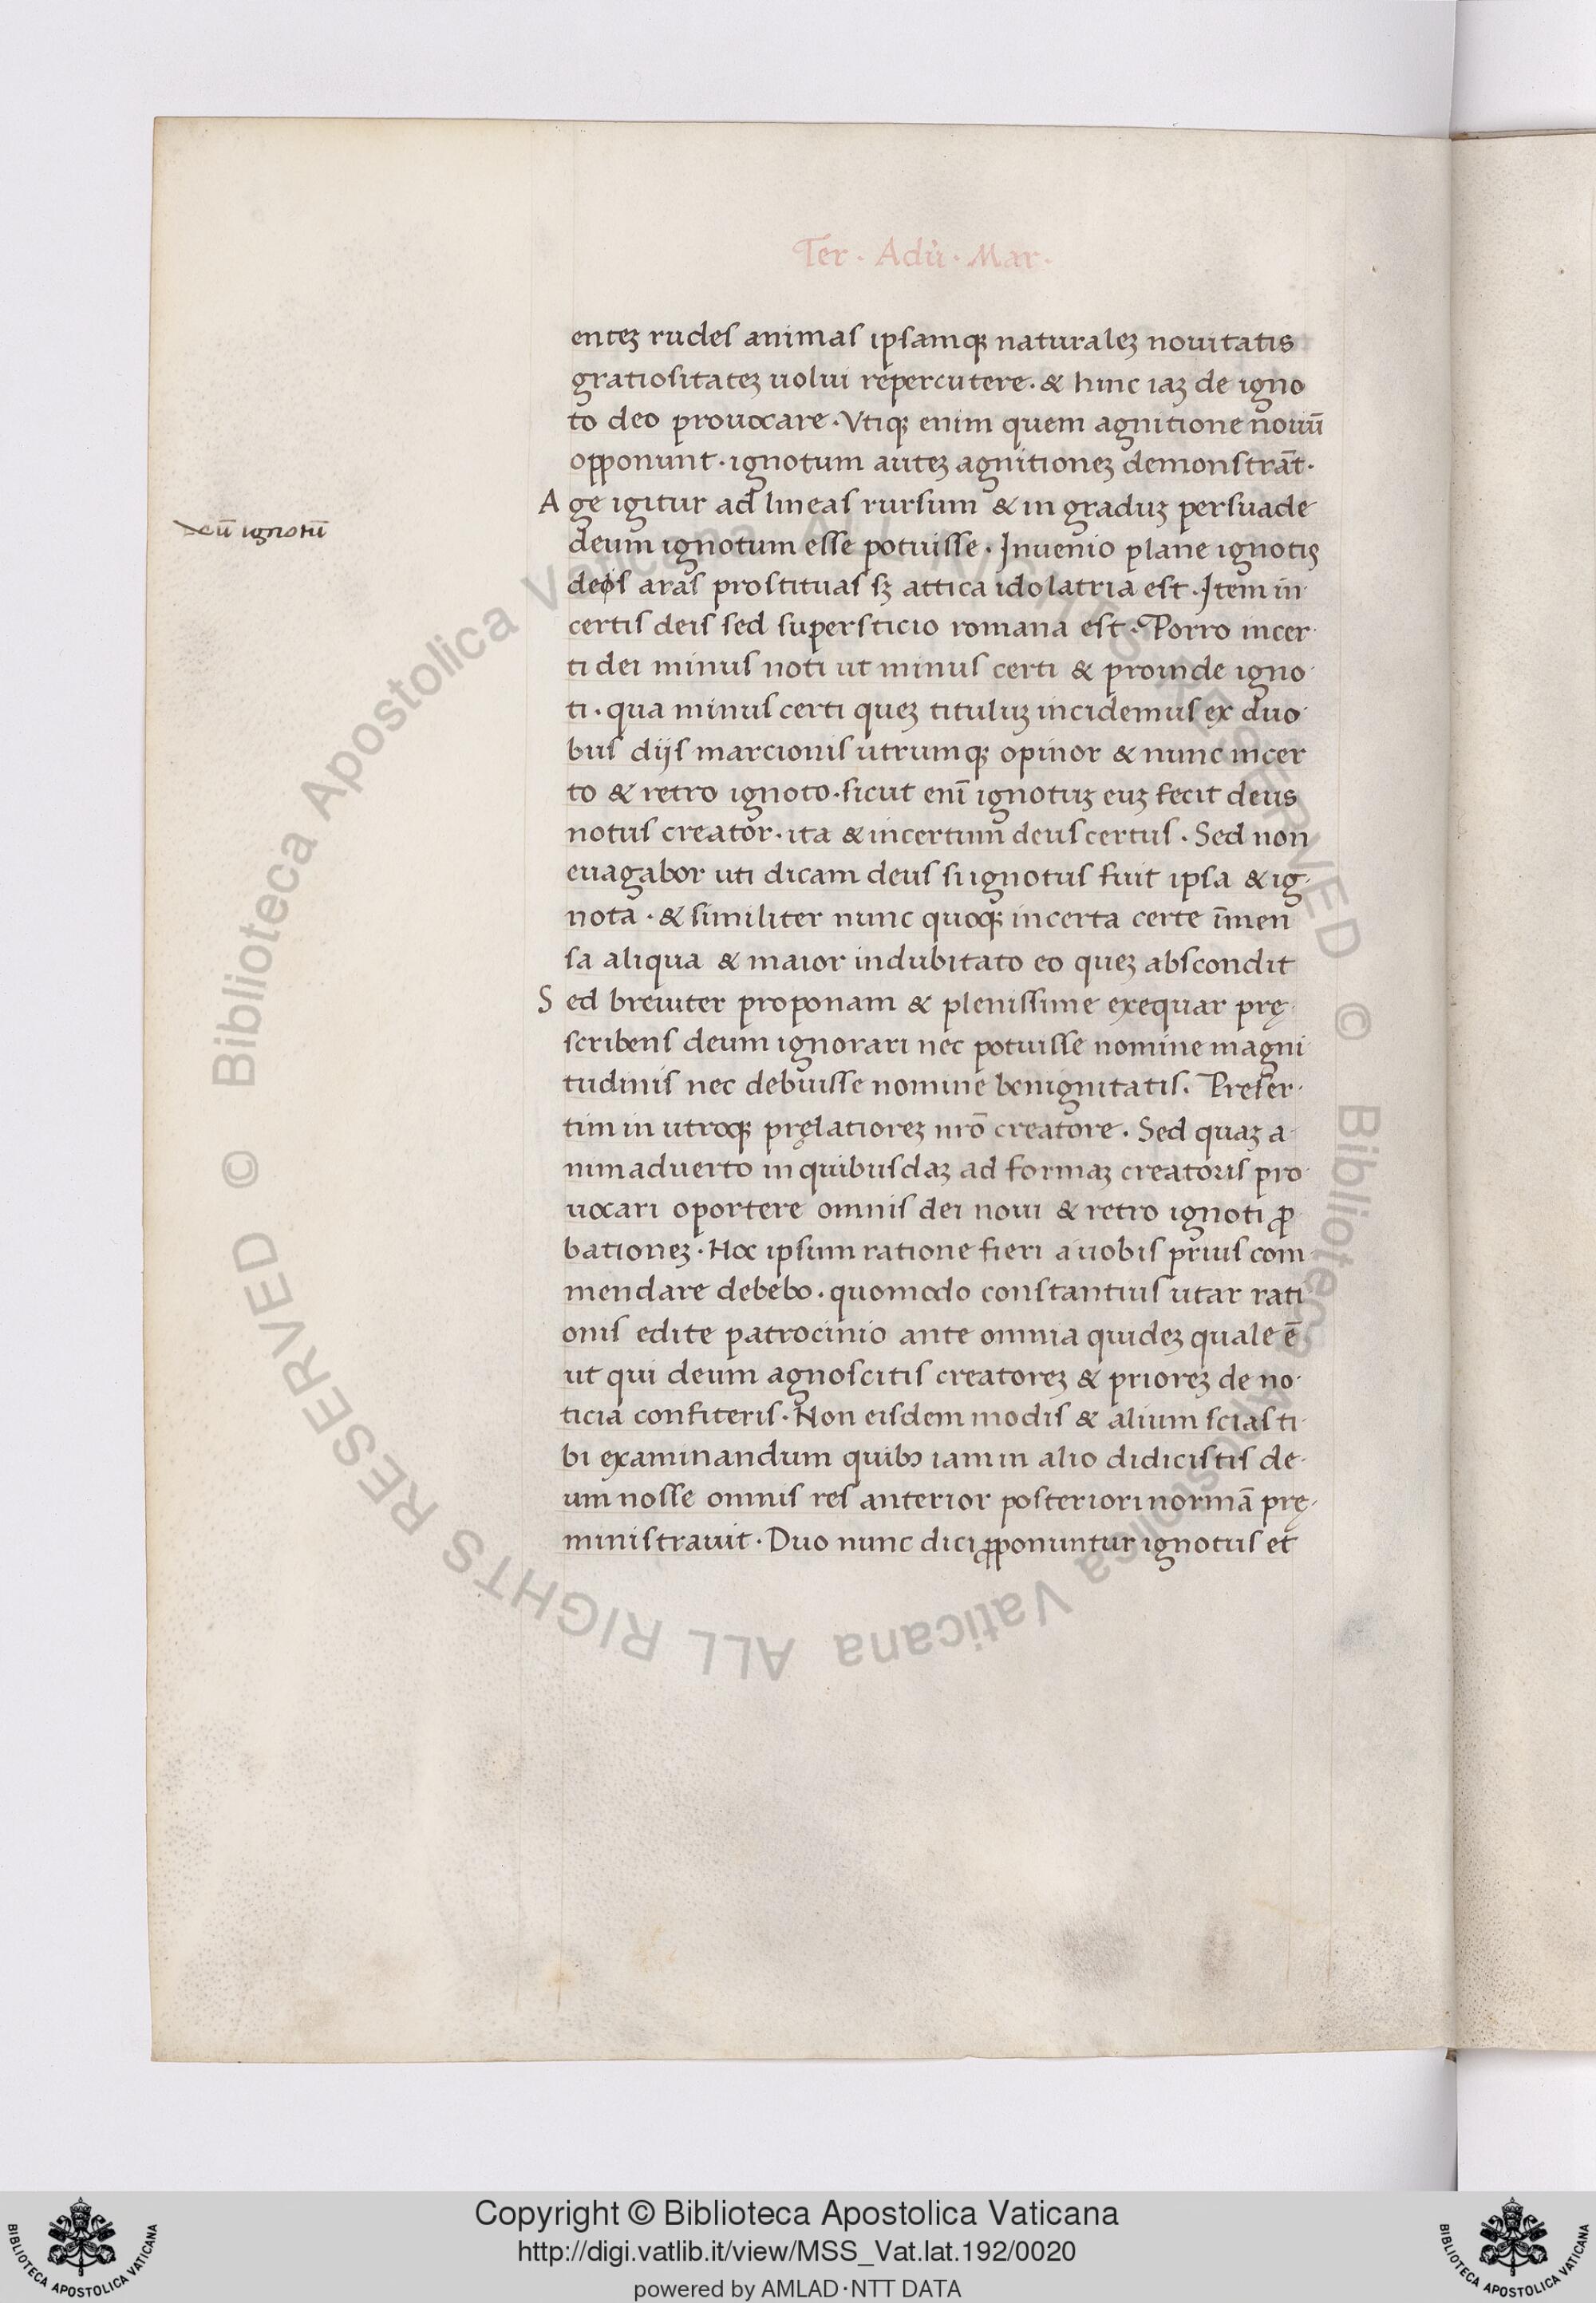 Ter · Adu̾ · Mar ·
enteꝫ rudes animas ipsamqꝫ naturaleꝫ nouitatis
gratiositateꝫ uolui repercutere · & hinc iaꝫ de igno
to deo prouocare · Vtiqꝫ enim quem agnitione nouū
opponunt · ignotum auteꝫ agnitioneꝫ demonstrāt ·
A ge igitur ad lineas rursum & in graduꝫ persuade
deū ignotū
deum ignotum esse potuisse · Inuenio plane ignotis
deos aras prostituas sꝫ attica idolatria est · Item in
certis deis sed supersticio romana est · Porro incer
ti dei minus noti ut minus certi & proinde igno
ti · qua minus certi queꝫ tituluꝫ incidemus ex duo
bus dijs marcionis utrumqꝫ opinor & nunc incer
to & retro ignoto · sicut enī ignotuꝫ euꝫ fecit deus
notus creator · ita & incertum deus certus · Sed non
euagabor uti dicam deus si ignotus fuit ipsa & ig
nota · & similiter nunc quoqꝫ incerta certe īmen
sa aliqua & maior indubitato eo queꝫ abscondit
S ed breuiter proponam & plenissime exequar prę
scribens deum ignorari nec potuisse nomine magni
tudinis nec debuisse nomine benignitatis. Preser
tim in utroqꝫ pręlatioreꝫ nrō creatore. Sed quaꝫ a
nimaduerto in quibusdaꝫ ad formaꝫ creatoris pro
uocari oportere omnis dei noui & retro ignoti ꝓ
bationeꝫ · Hoc ipsum ratione fieri a uobis prius com
mendare debebo · quomodo constantius utar rati
onis edite patrocinio ante omnia quideꝫ quale ē
ut qui deum agnoscitis creatoreꝫ & prioreꝫ de no
ticia confiteris · Non eisdem modis & alium scias ti
bi examinandum quibꝰ iam in alio didicistis de
um nosse omnis res anterior posteriori normā prę
ministrauit · Duo nunc dici ꝓponuntur ignotus et
© Biblioteca Apostolica Vaticana ALL RIGHTS RESERVED © Biblioteca Apostolica Vaticana ALL RIGHTS RESERVED
Copyright © Biblioteca Apostolica Vaticana
http://digi.vatlib.it/view/MSS_Vat.lat.192/0020
powered by AMLAD·NTT DATA
BIBLIOTECA APOSTOLICA VATICANA
BIBLIOTECA APOSTOLICA VATICANA